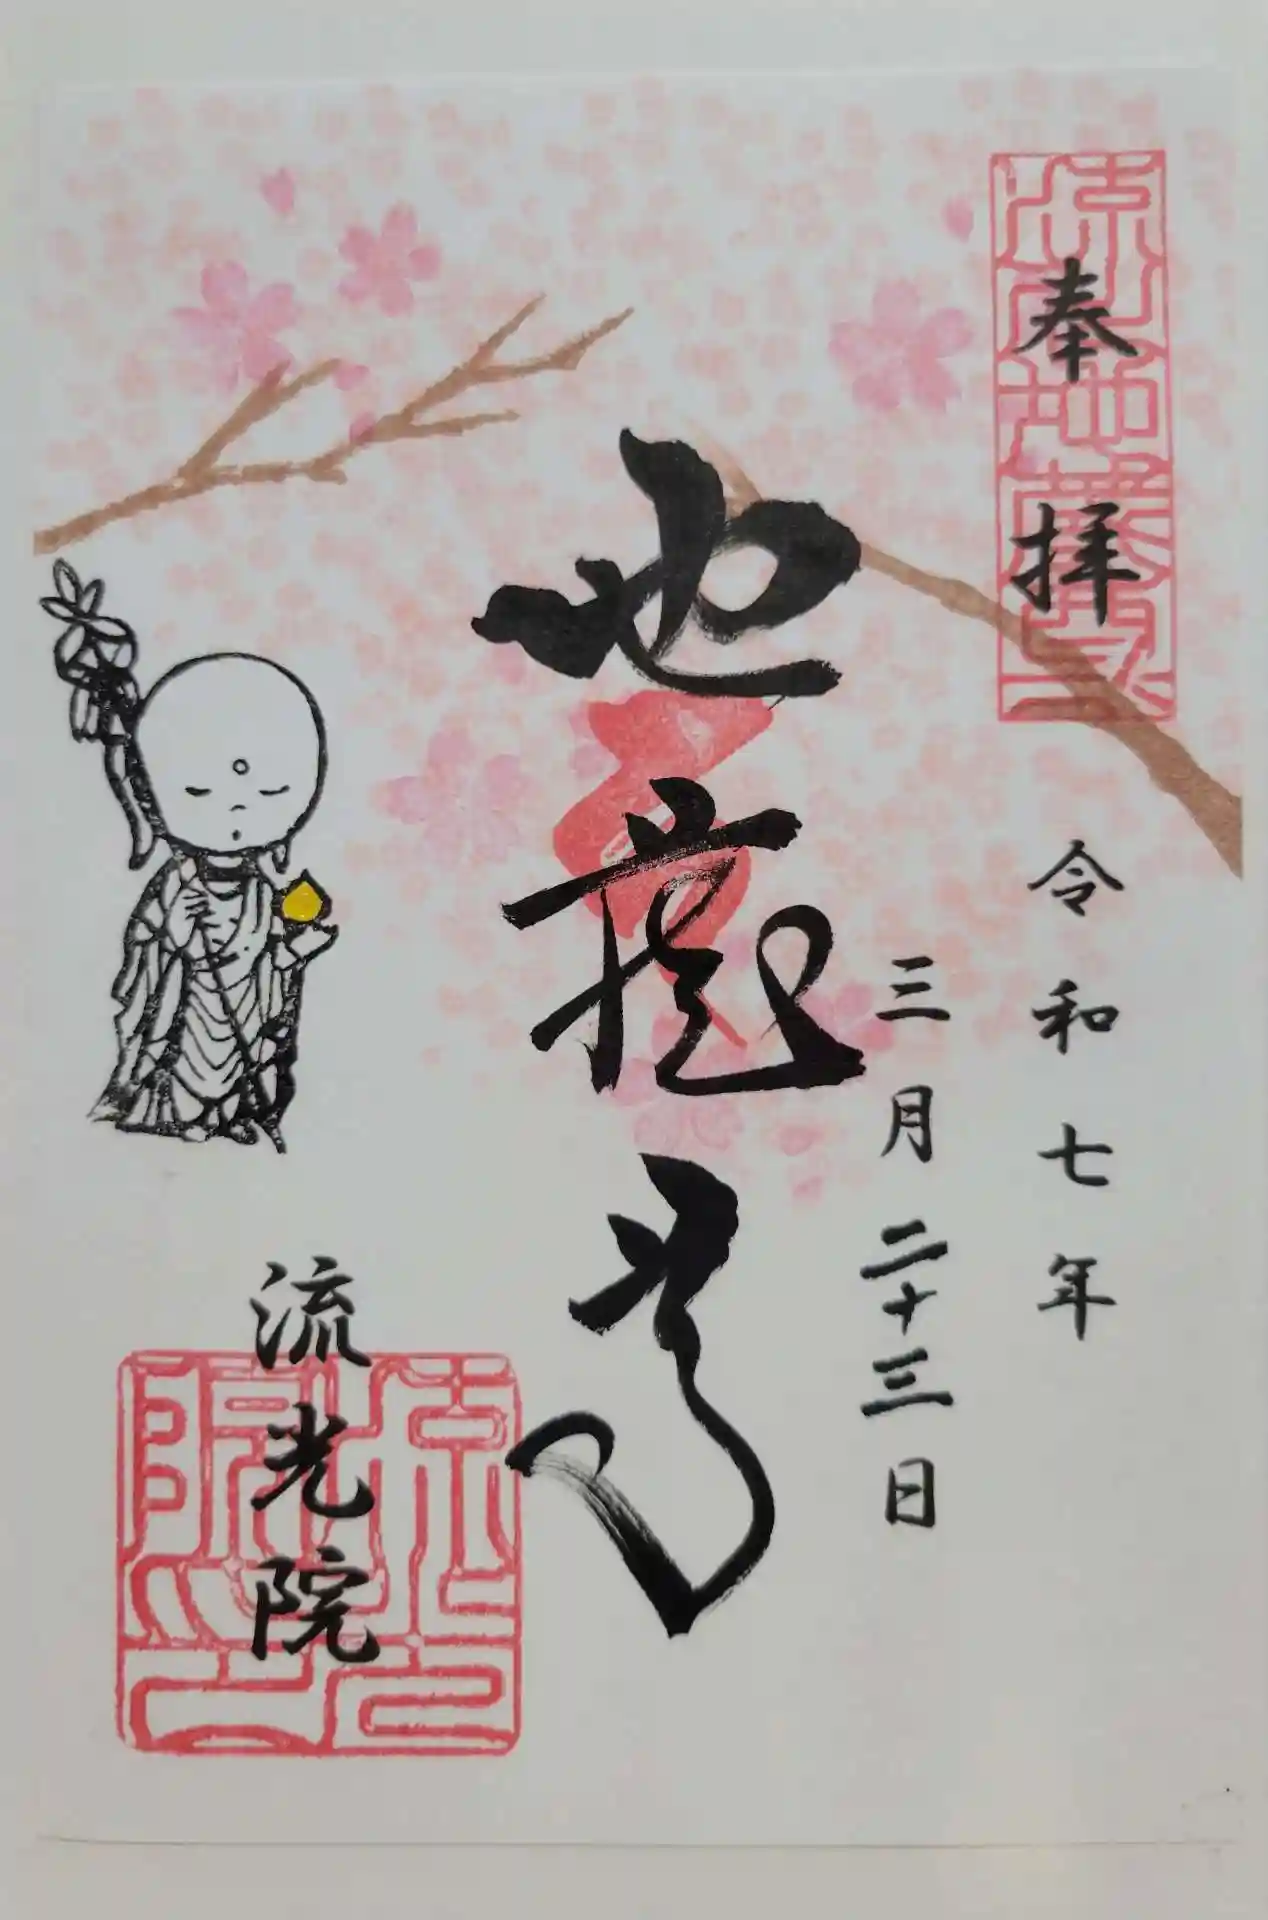 奉拝
令和七年
三月二十三日
地蔵尊
流光院